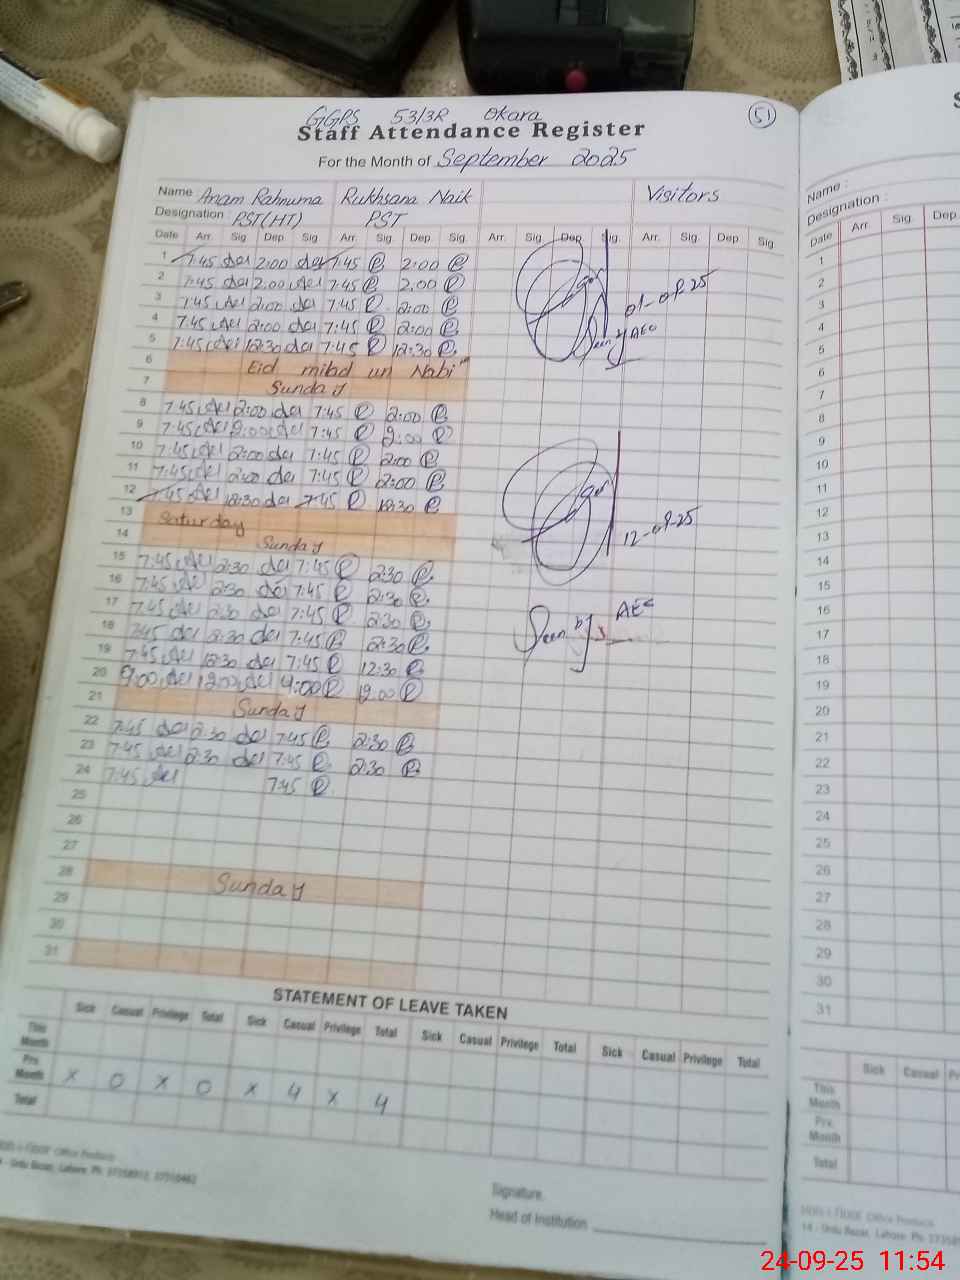 GGPS 53/3R Okara
51
Staff Attendance Register
For the Month of September 2025
Name : Anam Rahnuma Rukhsana Naik Visitors
Designation : PST(HT) PST
Date Arr. Sig Dep Sig Arr. Sig. Dep Sig. Arr. Sig Dep Sig. Arr. Sig. Dep Sig
1 7:45 2:00 7:45 2:00
2 7:45 2:00 7:45 2:00
3 7:45 2:00 7:45 2:00
4 7:45 2:00 7:45 2:00
5 7:45 12:30 7:45 12:30
01-09-25
Seen by AEO
6 Eid milad un Nabi
7 Sunday
8 7:45 2:00 7:45 2:00
9 7:45 2:00 7:45 2:00
10 7:45 2:00 7:45 2:00
11 7:45 2:00 7:45 2:00
12 7:45 12:30 7:45 12:30
12-09-25
13 Saturday
14 Sunday
15 7:45 2:30 7:45 2:30
16 7:45 2:30 7:45 2:30
17 7:45 2:30 7:45 2:30
18 7:45 2:30 7:45 2:30
19 7:45 12:30 7:45 12:30
20 9:00 12:00 9:00 12:00
Seen by AEO
21 Sunday
22 7:45 2:30 7:45 2:30
23 7:45 2:30 7:45 2:30
24 7:45 7:45
25
26
27
28 Sunday
29
30
31
STATEMENT OF LEAVE TAKEN
Sick Casual Privilege Total Sick Casual Privilege Total Sick Casual Privilege Total Sick Casual Privilege Total
This Month
Prv. Month x 0 x 0 x 4 x 4
Total
Office Products
Urdu Bazar, Lahore. Ph:
Signature.
Head of Institution
Name :
Designation :
Date Arr. Sig. Dep
1
2
3
4
5
6
7
8
9
10
11
12
13
14
15
16
17
18
19
20
21
22
23
24
25
26
27
28
29
30
31
Sick Casual
This Month
Prv. Month
Total
Office Products
14 - Urdu Bazar, Lahore. Ph:
24-09-25 11:54